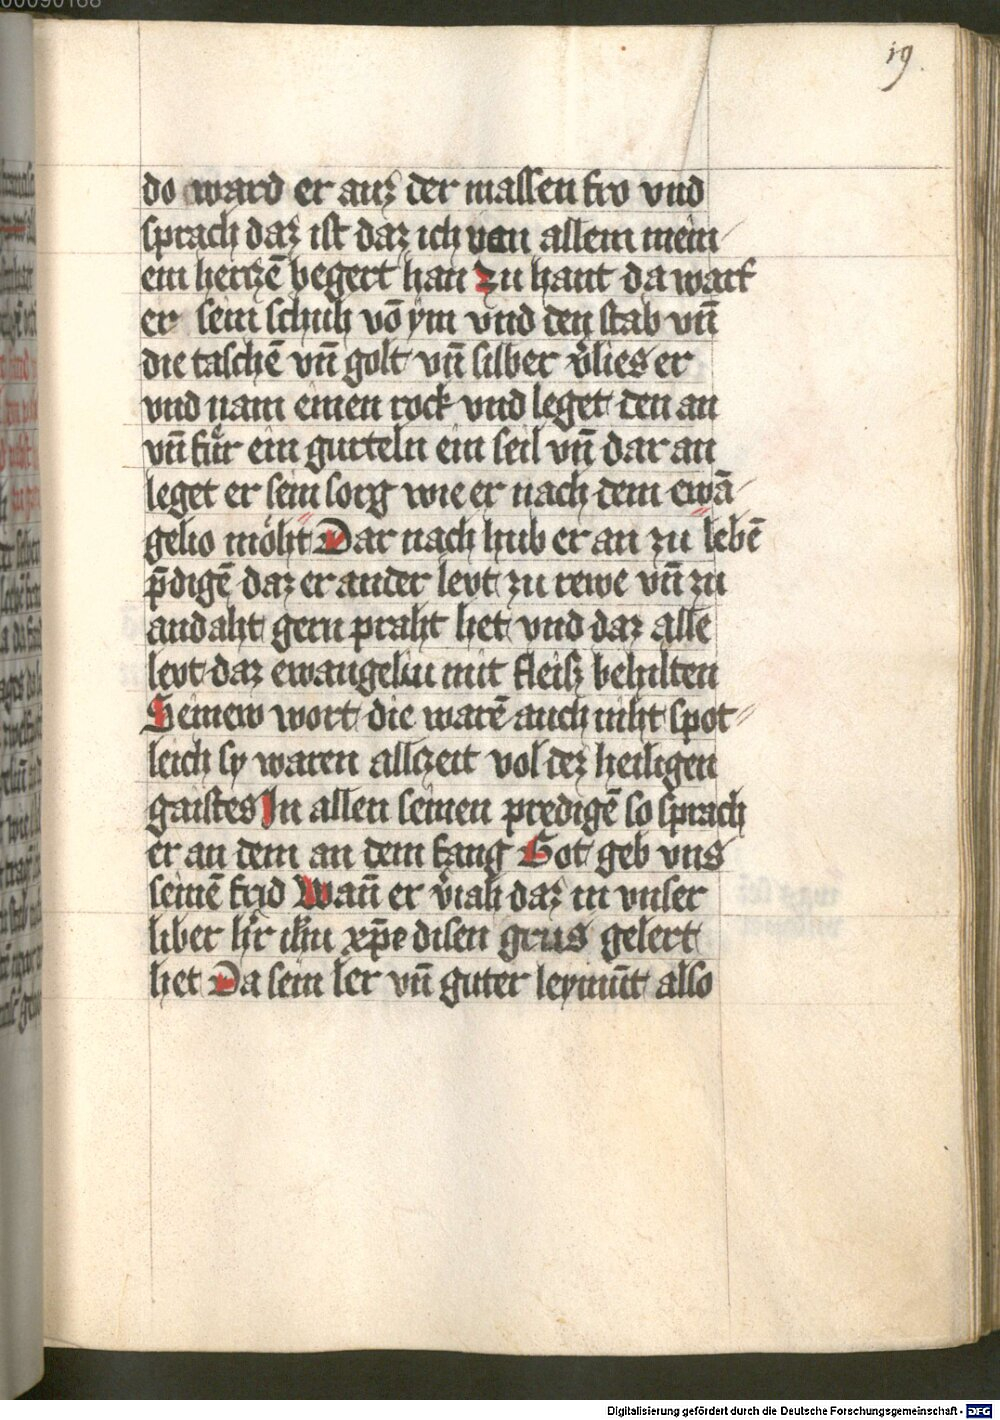 19.
do ward er auz der massen fro vnd
sprach daz ist daz ich von allem mein
em hertzē begert han Zu hant da warf
er sein schuh vō ym vnd den stab vn̄
die taschē vn̄ golt vn̄ silber v̓lies er
vnd nam einen rock vnd leget den an
vn̄ fuͤr ein gurteln ein seil vn̄ dar an
leget er sein sorg wie er nach dem ewā
gelio moͤht Dar nach hub er an zu lebē
p̄digē daz er ander levt zu rewe vn̄ zu
andaht gern praht het vnd daz alle
levt daz ewangeliu mit fleisz behilten
Seinew wort die warē auch niht spot
leich sy waren allczeit vol dez heiligen
gaistes In allen seinen predigē so sprach
er an dem an dem fang Got geb vns
seinē frid Wan̄ er v̓iah daz in vnser
liber h̓r ih̄u xp̄e disen grus gelert
het Da sein ler vn̄ guter leymūt also
Digitalisierung gefördert durch die Deutsche Forschungsgemeinschaft - DFG